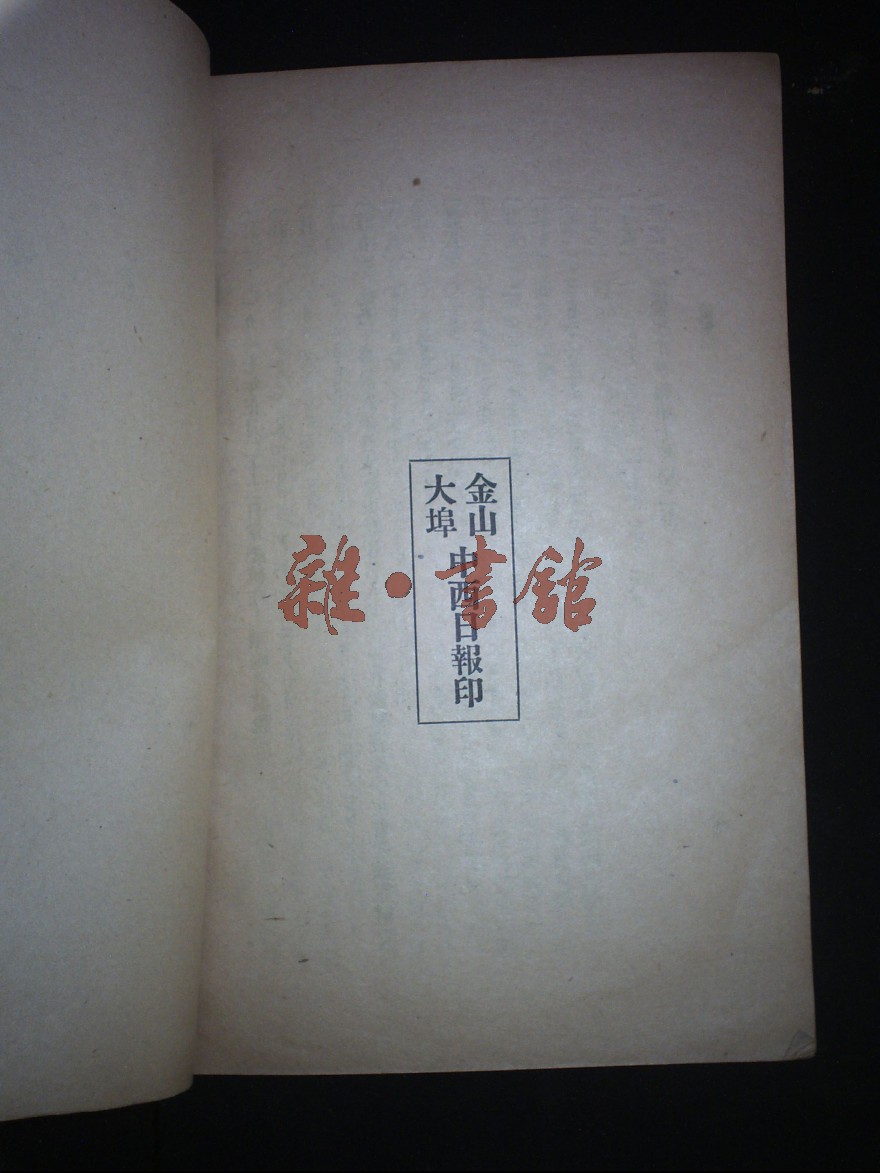 金山
大埠
中西日報印
雜·書館